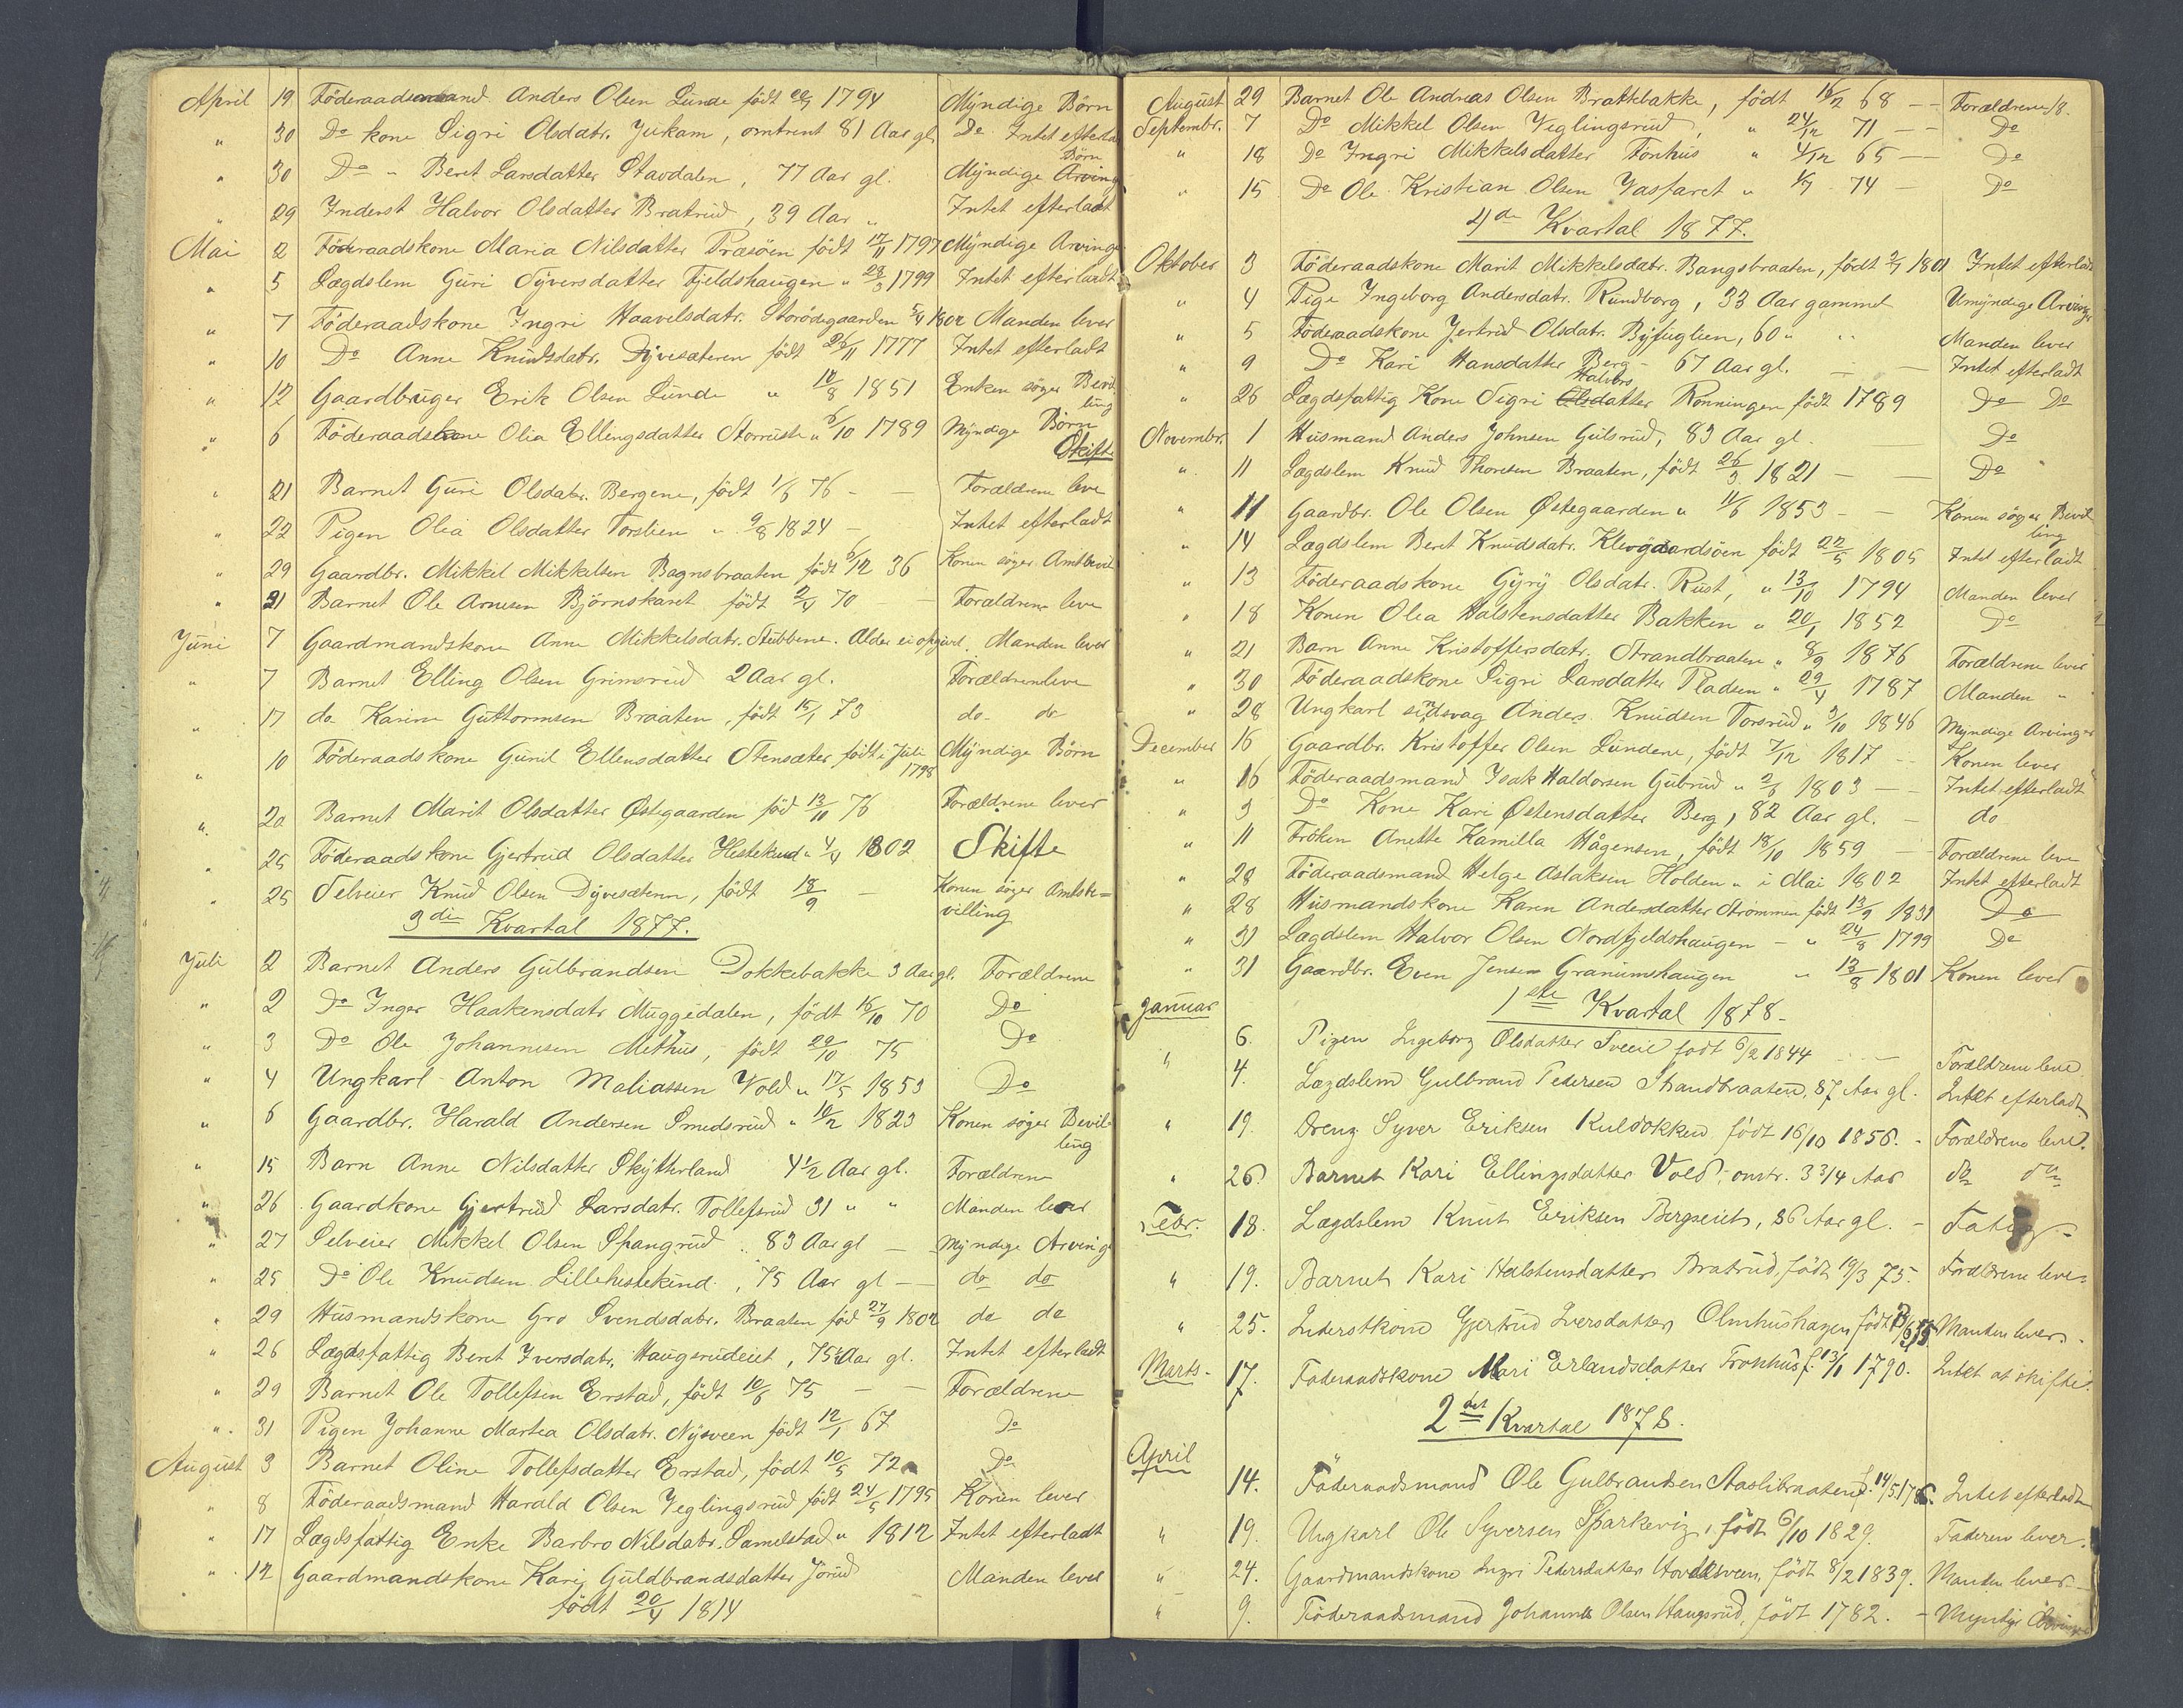 April 19 Föderaadsmand Anders Olsen Lunde født 1794 Myndige Börn
" 30 Do kone Sigri Olsdatr. Jukam, omtrent 81 Aar gl Do Intet efterla
" 30 Do " Beret Larsdatter Stavdalen, 77 Aar gl. Myndige Börn
" 29 Inderst Halvor Olsdatter Bratrud, 39 Aar " Intet efterladt
Mai 2 Föderaadskone Maria Nilsdatter Præsöien født 17/11 1797 Myndige Arvinge
" 5 Lægdslem Guri Syversdatter Fjeldshaugen " 28/3 1799 Intet efterladt
" 7 Föderaadskone Ingri Haavelsdatr. Storödegaarden 5/4 1802 Manden lever
" 10 Do Anne Knudsdatr. Dyvesæteren født 26/11 1777 Intet efterladt
" 12 Gaardbruger Erik Olsen Lunde " 18/8 1851 Enken söger Bevil
ling
" 6 Föderaadskone Olia Ellingsdatter Storruste " 6/10 1789 Myndige Börn
Skifte
" 21 Barnet Guri Olsdatr. Bergene, født 1/6 76 - - Forældrene leve
" 22 Pigen Olia Olsdatter Torslien " 9/8 1824 - Intet efterladt
" 29 Gaardbr. Mikkel Mikkelsen Bagnsbraaten født 6/12 36 Konen söger Amtbevil
" 31 Barnet Ole Arnesen Björnskaret født 2/4 70 - - Forældrene leve
Juni 7 Gaardmandskone Anne Mikkelsdatr. Stubbene. Alder ei opgivet. Manden lever
" 7 Barnet Elling Olsen Grimsrud 2 Aar gl. Forældrene leve
" 17 do Karine Guttormsen Braaten, født 15/1 73 do do
" 10 Föderaadskone Gunil Ellensdatter Stensæter født i Juli 1798 Myndige Börn
" 20 Barnet Marit Olsdatter Østegaarden fød 13/10 76 Forældrene lever
" 25 Föderaadskone Gjertrud Olsdatter Hestekind " 4/4 1802 Skifte
" 25 Selveier Knud Olsen Dyvesæteren, født 18/9 - Konen söger Amtsbe=
villing
3die Kvartal 1877.
Juli 2 Barnet Anders Gulbrandsen Dokkebakke 3 Aar gl. Forældrene
" 2 Do Inger Haakensdatr Muggedalen, født 16/10 70 Do
" 3 Do Ole Johannesen Methus, født 29/10 75 Do
" 4 Ungkarl Anton Maliassen Vold " 17/5 1853 Do
" 6 Gaardbr. Harald Andersen Smedsrud " 10/2 1823 Konen söger Bevil-
ling
" 15 Barn Anne Nilsdatter Skytterland 4 1/2 Aar gl. Forældrene
" 26 Gaardkone Gjertrud Larsdatr. Tollefsrud 31 " " Manden lever
" 27 Selveier Mikkel Olsen Spangrud .. 83 Aar gl - Myndige Arvinge
" 25 Do Ole Knudsen Lillehestekind, 75 Aar gl - - do do
" 29 Husmandskone Gro Svendsdatr. Braaten fød 27/9 1802 do do
" 26 Lægdsfattig Beret Iversdatr. Haugsrudeiet, 75 Aar gl. Intet efterladt
" 29 Barnet Ole Tollefsen Erstad, født 10/6 75 - - Forældrene
" 31 Pigen Johanne Martea Olsdatr. Nysveen født 12/1 67 Do
August 3 Barnet Oline Tollefsdatter Erstad, født 10/5 72 Do
" 8 Föderaadsmand Harald Olsen Veglingsrud født 24/5 1795 Konen lever
" 17 Lægdsfattig Enke Barbro Nilsdatr. Samelstad " 1812 Intet efterladt
" 12 Gaardmandskone Kari Guldbrandsdatter Jörud Manden lever
født 20/4 1814
August 29 Barnet Ole Andreas Olsen Brattbakke, født 16/2 68 - - Forældrene
Septembr. 7 Do Mikkel Olsen Veglingsrud, " 24/12 71 - - Do
" 18 Do Ingri Mikkelsdatter Fönhus " 4/12 65 - Do
" 15 Do Ole Kristian Olsen Vasfaret " 1/7 74 - Do
4de Kvartal 1877.
Oktober 3 Föderaadskone Marit Mikkelsdatr. Bangsbraaten, født 2/7 1801 Intet efterladt
" 4 Pige Ingeborg Andersdatr. Rundborg, 33 Aar gammel Umyndige Arvinger
" 5 Föderaadskone Jertrud Olsdatr. Byfuglien, 60 " " Manden lever
" 9 Do Kari Hansdatter Berg - 67 Aar gl. - - Intet efterladt
" 26 Lægdsfattig Kone Sigri Halvorsdatter Rönningen født 1789 Do Do
Novembr. 1 Husmand Anders Johnsen Gulsrud, 83 Aar gl. Do
" 11 Lægdslem Knud Thoresen Braaten, født 26/3 1821 - - Do
" 11 Gaardbr. Ole Olsen Østegaarden " 11/6 1853 - - Konen söger Bevil
ling
" 14 Lægdslem Beret Knudsdatr. Klevgaardsöen født 22/5 1805 Intet efterladt
" 13 Föderaadskone Gyry Olsdatr. Rust, " 13/10 1794 Manden lever
" 18 Konen Olea Halstensdatter Bakken " 20/1 1852 Do
" 21 Barn Anne Kristoffersdatr. Strandbraaten " 8/9 1876 Forældrene lever
" 30 Föderaadskone Sigri Larsdatter Pladsen " 29/4 1787 Manden "
" 28 Ungkarl sindsvag Anders Knudsen Torsrud " 9/10 1846 Myndige Arvinger
December 16 Gaardbr. Kristoffer Olsen Lundene, født 7/12 1817 - - Konen lever
" 16 Föderaadsmand Isak Haldorsen Gubrud " 2/6 1803 - - Intet efterladt
" 3 Do Kone Kari Østensdatter Berg, 82 Aar gl. - do
" 11 Fröken Anette Kamilla Hågensen, født 18/10 1859 - Forældrene leve
" 28 Föderaadsmand Helge Aslaksen Holden " i Mai 1802 Intet efterladt
" 28 Husmandskone Karen Andersdatter Strömmen født 13/9 1831 Do
" 31 Lægdslem Halvor Olsen Nordfjeldshaugen - " 24/8 1799 Do
" 31 Gaardbr. Even Jensen Granumshaugen " 13/8 1801 Konen lever
1ste Kvartal 1878.
Januar 6. Pigen Ingeborg Olsdatter Sveen født 6/2 1844 - - Forældrene leve.
" 4. Lægdslem Gulbrand Pedersen Strandbraaten, 87 Aar gl. Intet efterladt
" 19. Dreng Syver Eriksen Kuldokken født 16/10 1856. - Forældrene leve.
" 26 Barnet Kari Ellingsdatter Vold, omtr. 3 3/4 Aar do do
Febr. 18. Lægdslem Knut Eriksen Bergseiet, 86 Aar gl. - Fatig -
" 19. Barnet Kari Halstensdatter Bratrud, født 19/3 75. Forældrene leve.
" 25. Inderstkone Gjertrud Iversdatter Olmhushagen født Manden lever.
Marts. 17. Föderaadskone Mari Erlandsdatter Tronhus f. 13/1 1790. Intet at skifte.
2det Kvartal 1878.
April 14. Föderaadsmand Ole Gulbrandsen Aaslibraaten f. 14/5 Intet efterladt
" 19. Ungkarl Ole Syversen Sparkevig, født 6/10 1829. Faderen lever.
" 24. Gaardmandskone Ingri Pedersdatter Hovdesveen, født 8/2 1839. Manden lever
" 9. Föderaadsmand Johannes Olsen Haugsrud, født 1782. - Myndige Arvinger